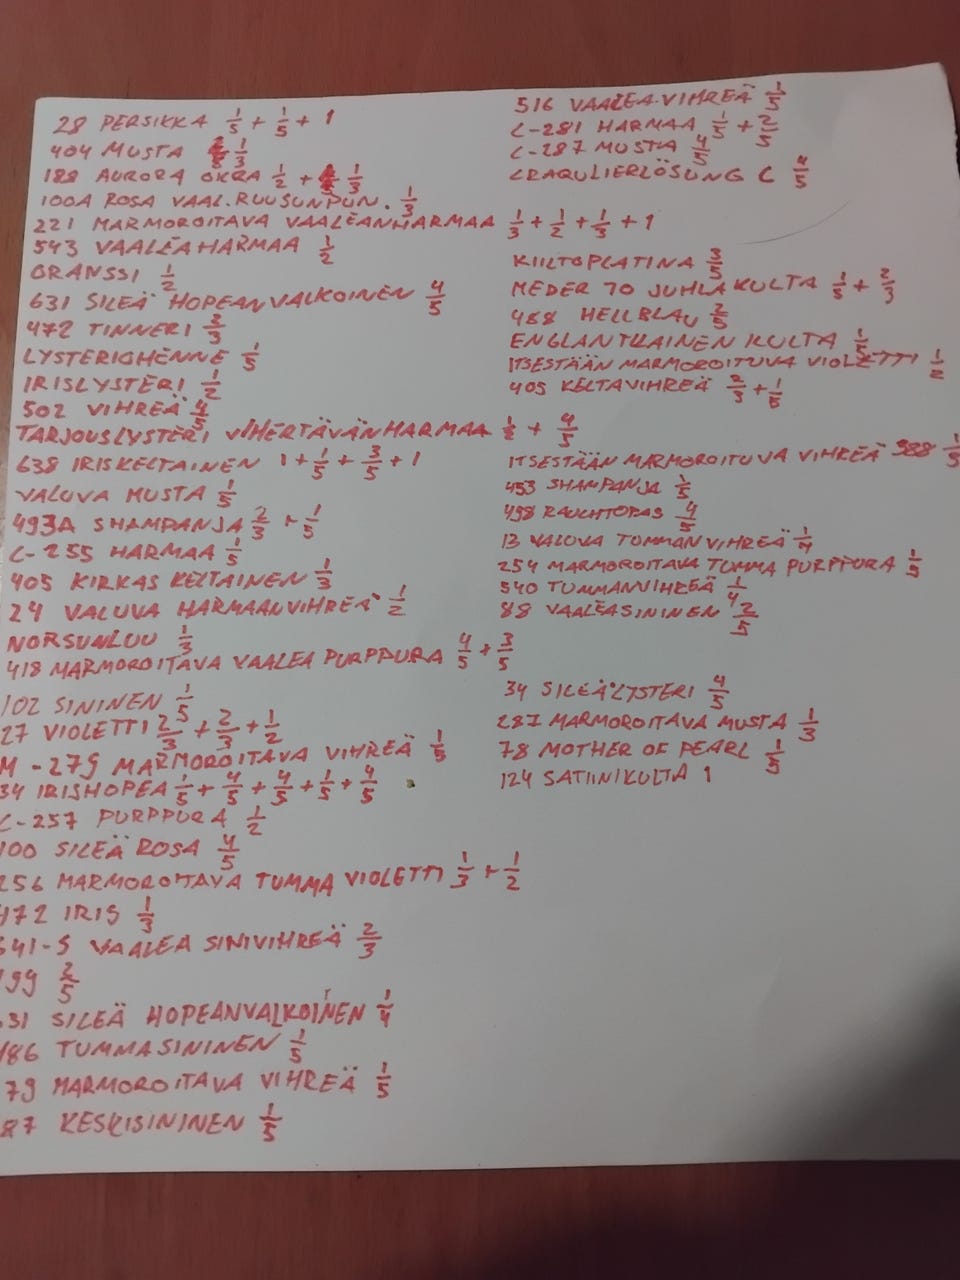 28 PERSIKKA 1/5 + 1/5 + 1
404 MUSTA 1/3
188 AURORA OKRA 1/2 + 1/3
100A ROSA VAAL.RUUSUNPUN. 1/3
221 MARMOROITAVA VAALEANHARMAA 1/3 + 1/2 + 1/3 + 1
543 VAALEAHARMAA 1/2
ORANSSI 1/2
631 SILEÄ HOPEANVALKOINEN 4/5
472 TINNERI 2/3
LYSTERIGHENNE 1/5
IRISLYSTERI 1/2
502 VIHREÄ 4/5
TARJOUSLYSTERI VIHERTÄVÄNHARMAA 1/2 + 4/5
638 IRISKELTAINEN 1 + 1/5 + 3/5 + 1
VALUVA MUSTA 1/5
493A SHAMPANJA 2/3 + 1/5
C-255 HARMAA 1/5
405 KIRKAS KELTAINEN 1/3
24 VALUVA HARMAANVIHREÄ 1/2
NORSUNLUU 1/3
418 MARMOROITAVA VAALEA PURPPURA 4/5 + 3/5
102 SININEN 1/5
27 VIOLETTI 2/3 + 2/3 + 1/2
M-279 MARMOROITAVA VIHREÄ 1/5
34 IRISHOPEA 1/5 + 4/5 + 4/5 + 1/5 + 4/5
C-257 PURPPURA 1/2
100 SILEÄ ROSA 4/5
256 MARMOROITAVA TUMMA VIOLETTI 1/3 + 1/2
472 IRIS 1/3
541-S VAALEA SINIVIHREÄ 2/3
199 2/5
631 SILEÄ HOPEANVALKOINEN 1/4
486 TUMMASININEN 1/5
79 MARMOROITAVA VIHREÄ 1/5
87 KESKISININEN 1/5
516 VAALEA.VIHREÄ 1/5
C-281 HARMAA 1/5 + 2/5
C-287 MUSTA 4/5
CRAQULIERLÖSUNG C /5
KIILTOPLATINA 3/5
MEDER 70 JUHLAKULTA 1/5 + 2/3
488 HELLBLAU 2/5
ENGLANTILAINEN KULTA 1/5
ITSESTÄÄN MARMOROITUVA VIOLETTI 1/2
405 KELTAVIHREÄ 2/3 + 1/5
ITSESTÄÄN MARMOROITUVA VIHREÄ 988 1/5
493 SHAMPANJA 1/5
498 RAUCHTOPAS 4/5
13 VALUVA TUMMANVIHREÄ 1/4
254 MARMOROITAVA TUMMA PURPPURA 1/5
540 TUMMANVIHREÄ 1/4
88 VAALEASININEN 2/5
34 SILEÄLYSTERI 4/5
287 MARMOROITAVA MUSTA 1/3
78 MOTHER OF PEARL 1/5
124 SATIINIKULTA 1